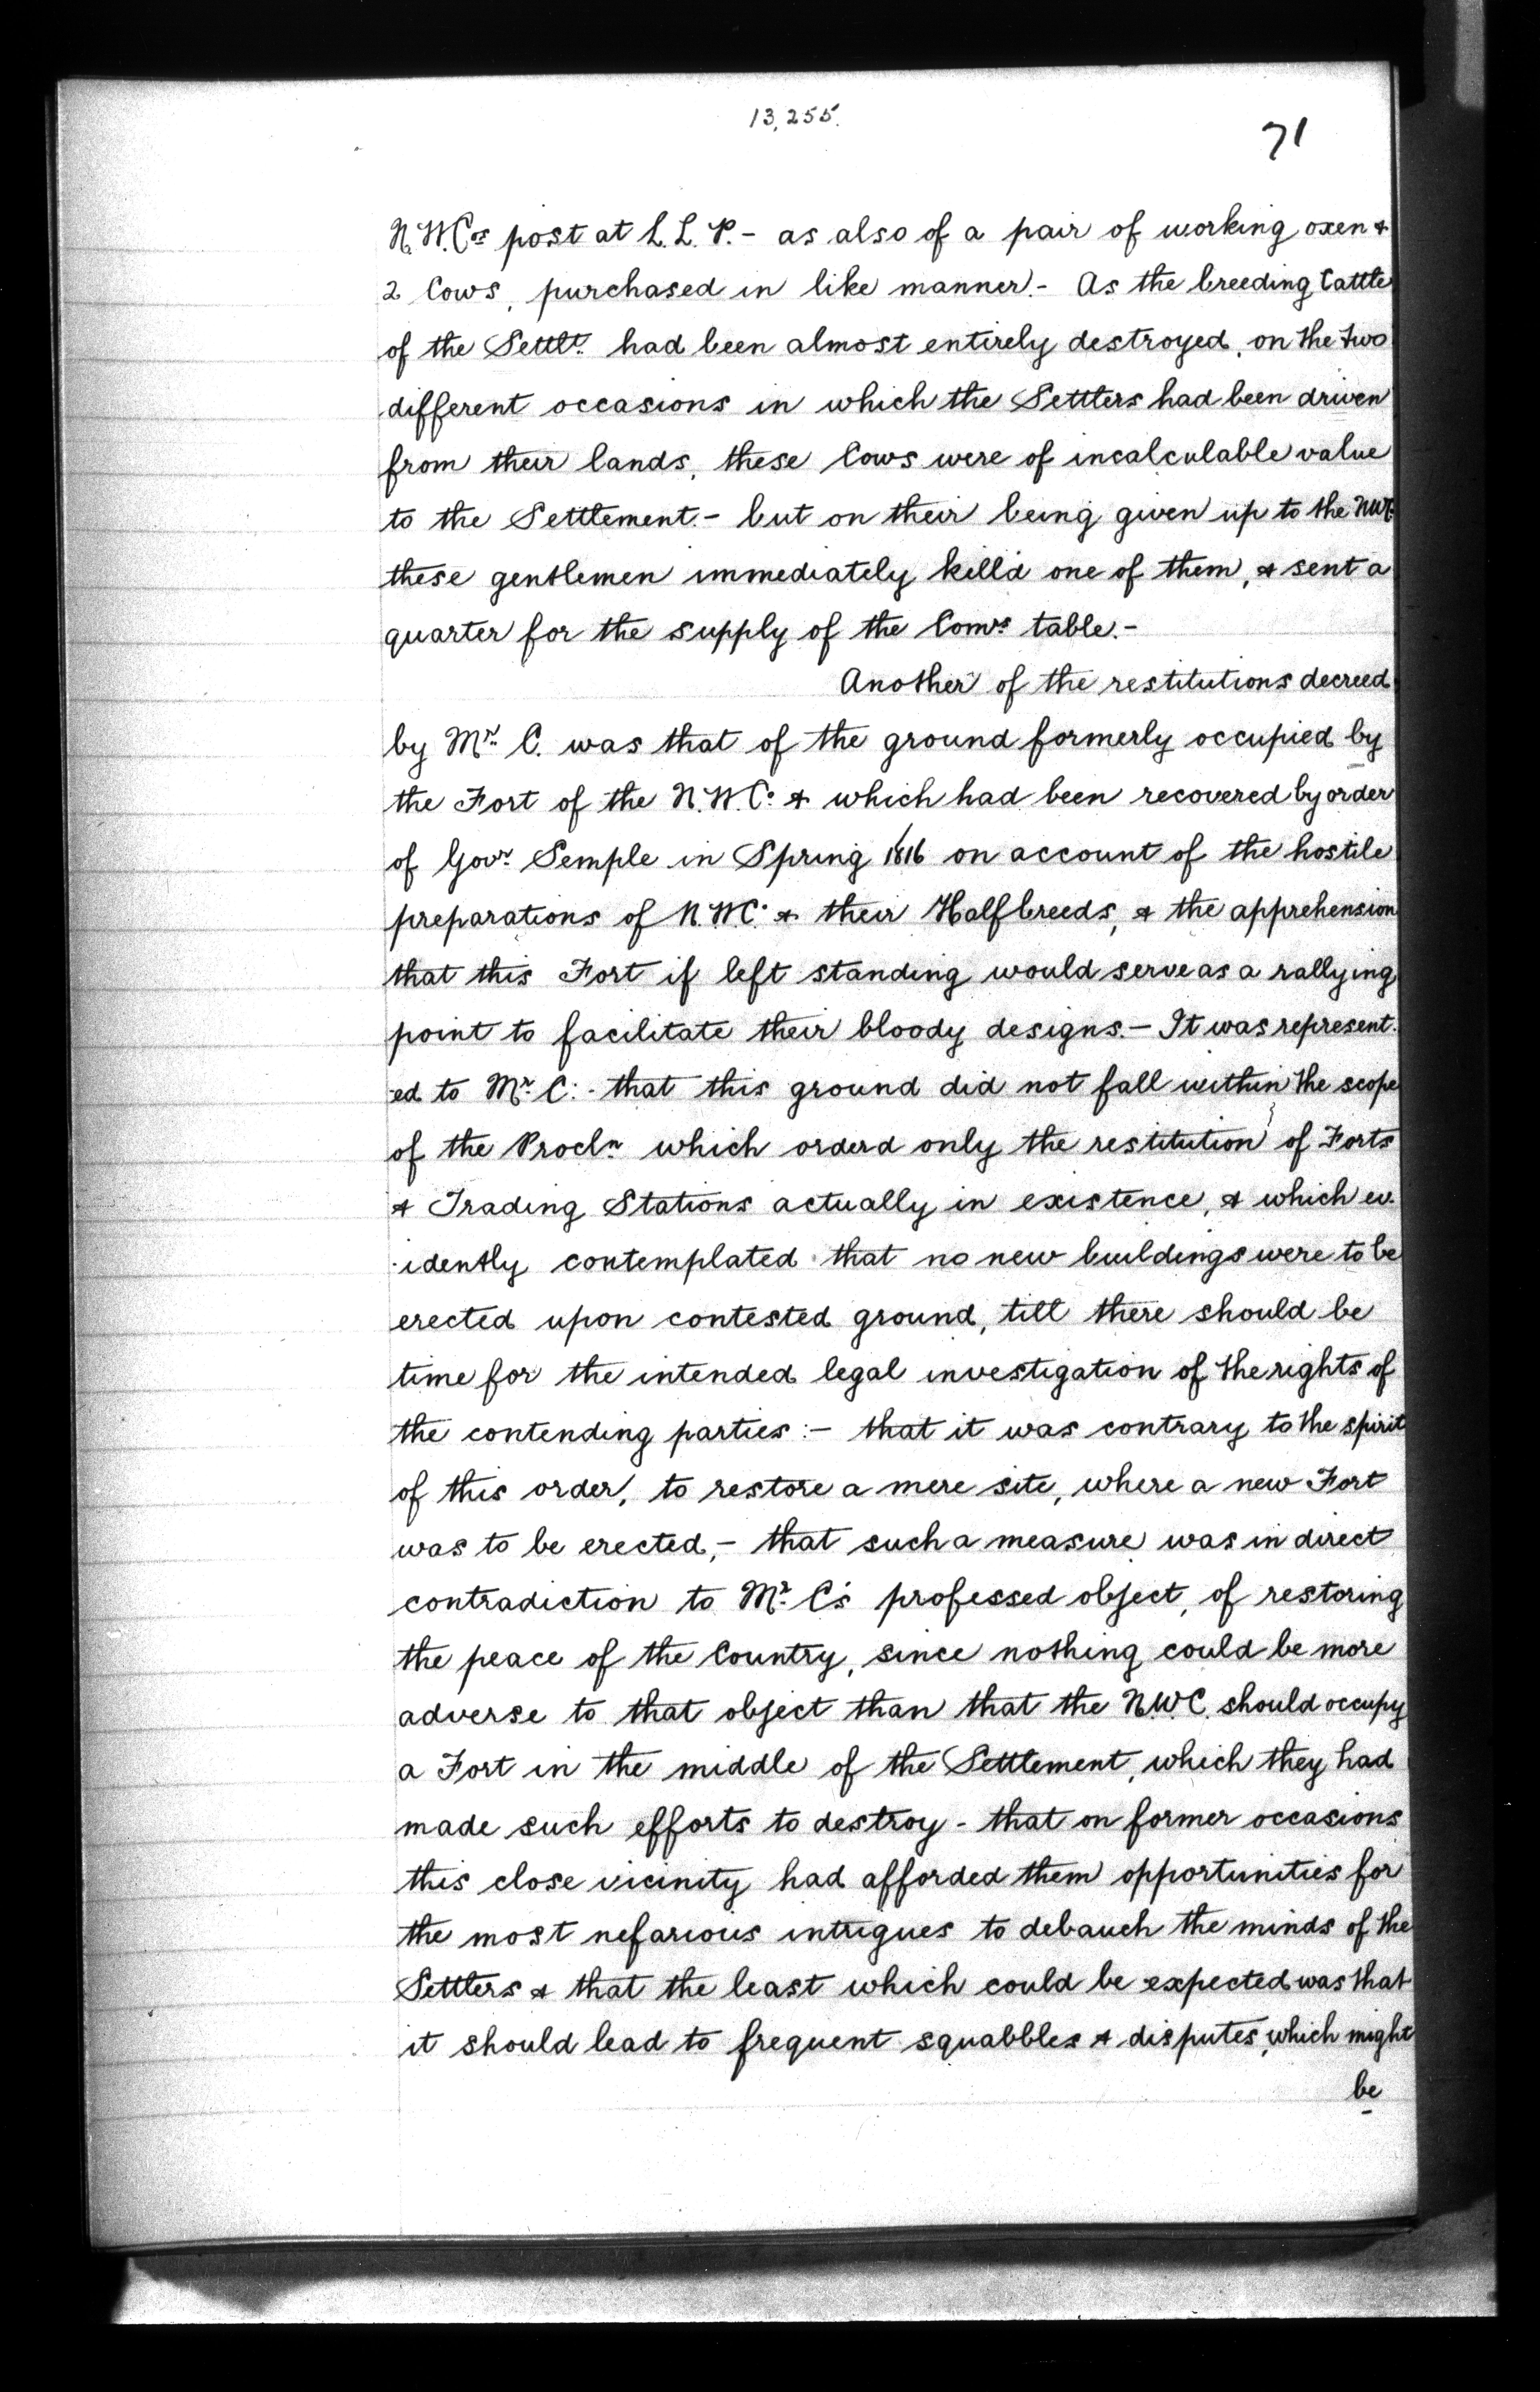 13,255.
71
N.W.Cos post at L.L.P. - as also of a pair of working oxen &
2 Cows, purchased in like manner. - As the breeding Cattle
of the Settlt. had been almost entirely destroyed, on the two
different occasions in which the Settlers had been driven
from their lands, these Cows were of incalculable value
to the Settlement. - but on their being given up to the NWC.
these gentlemen immediately killd one of them, & sent a
quarter for the supply of the Comrs table. -
Another of the restitutions decreed
by Mr. C. was that of the ground formerly occupied by
the Fort of the N.W.Co. & which had been recovered by order
of Govr. Semple in Spring 1816 on account of the hostile
preparations of N.W.Co. & their Halfbreeds, & the apprehension
that this Fort if left standing would serve as a rallying
point to facilitate their bloody designs. - It was represent-
ed to Mr. C: - that this ground did not fall within the scope
of the Procln which orderd only the restitution of Forts
& Trading Stations actually in existence, & which ev-
idently contemplated that no new buildings were to be
erected upon contested ground, till there should be
time for the intended legal investigation of the rights of
the contending parties: - that it was contrary to the spirit
of this order, to restore a mere site, where a new Fort
was to be erected, - that such a measure was in direct
contradiction to Mr. C's professed object, of restoring
the peace of the Country, since nothing could be more
adverse to that object than that the N.W.C. should occupy
a Fort in the middle of the Settlement, which they had
made such efforts to destroy - that on former occasions
this close vicinity had afforded them opportunities for
the most nefarious intrigues to debauch the minds of the
Settlers & that the least which could be expected was that
it should lead to frequent squabbles & disputes, which might
be